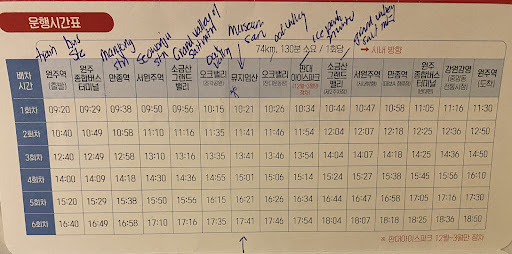 운행시간표
train bus stn Manjong stn Seowonju stn Grand valley of oak valley Museum san oak valley ice park grand valley
74km, 130분 소요 / 1회당 → 시내 방향
배차 시간 원주역 (출발) 원주 종합버스 터미널 만종역 서원주역 소금산 그랜드 밸리 오크밸리 뮤지엄산 오크밸리 판대 아이스파크 (12월~3월만 정차) 소금산 그랜드 밸리 서원주역 만종역 원주 종합버스 터미널 강원감영 원주역 (도착)
1회차 09:20 09:29 09:38 09:50 09:56 10:15 10:21 10:26 10:34 10:44 10:47 10:58 11:05 11:16 11:30
2회차 10:40 10:49 10:58 11:10 11:16 11:35 11:41 11:46 11:54 12:04 12:07 12:18 12:25 12:36 12:50
3회차 12:40 12:49 12:58 13:10 13:16 13:35 13:41 13:46 13:54 14:04 14:07 14:18 14:25 14:36 14:50
4회차 14:00 14:09 14:18 14:30 14:36 14:55 15:01 15:06 15:14 15:24 15:27 15:38 15:45 15:56 16:10
5회차 15:20 15:29 15:38 15:50 15:56 16:15 16:21 16:26 16:34 16:44 16:47 16:58 17:05 17:16 17:30
6회차 16:40 16:49 16:58 17:10 17:16 17:35 17:41 17:46 17:54 18:04 18:07 18:18 18:25 18:36 18:50
* 판대아이스파크 12월~3월만 정차